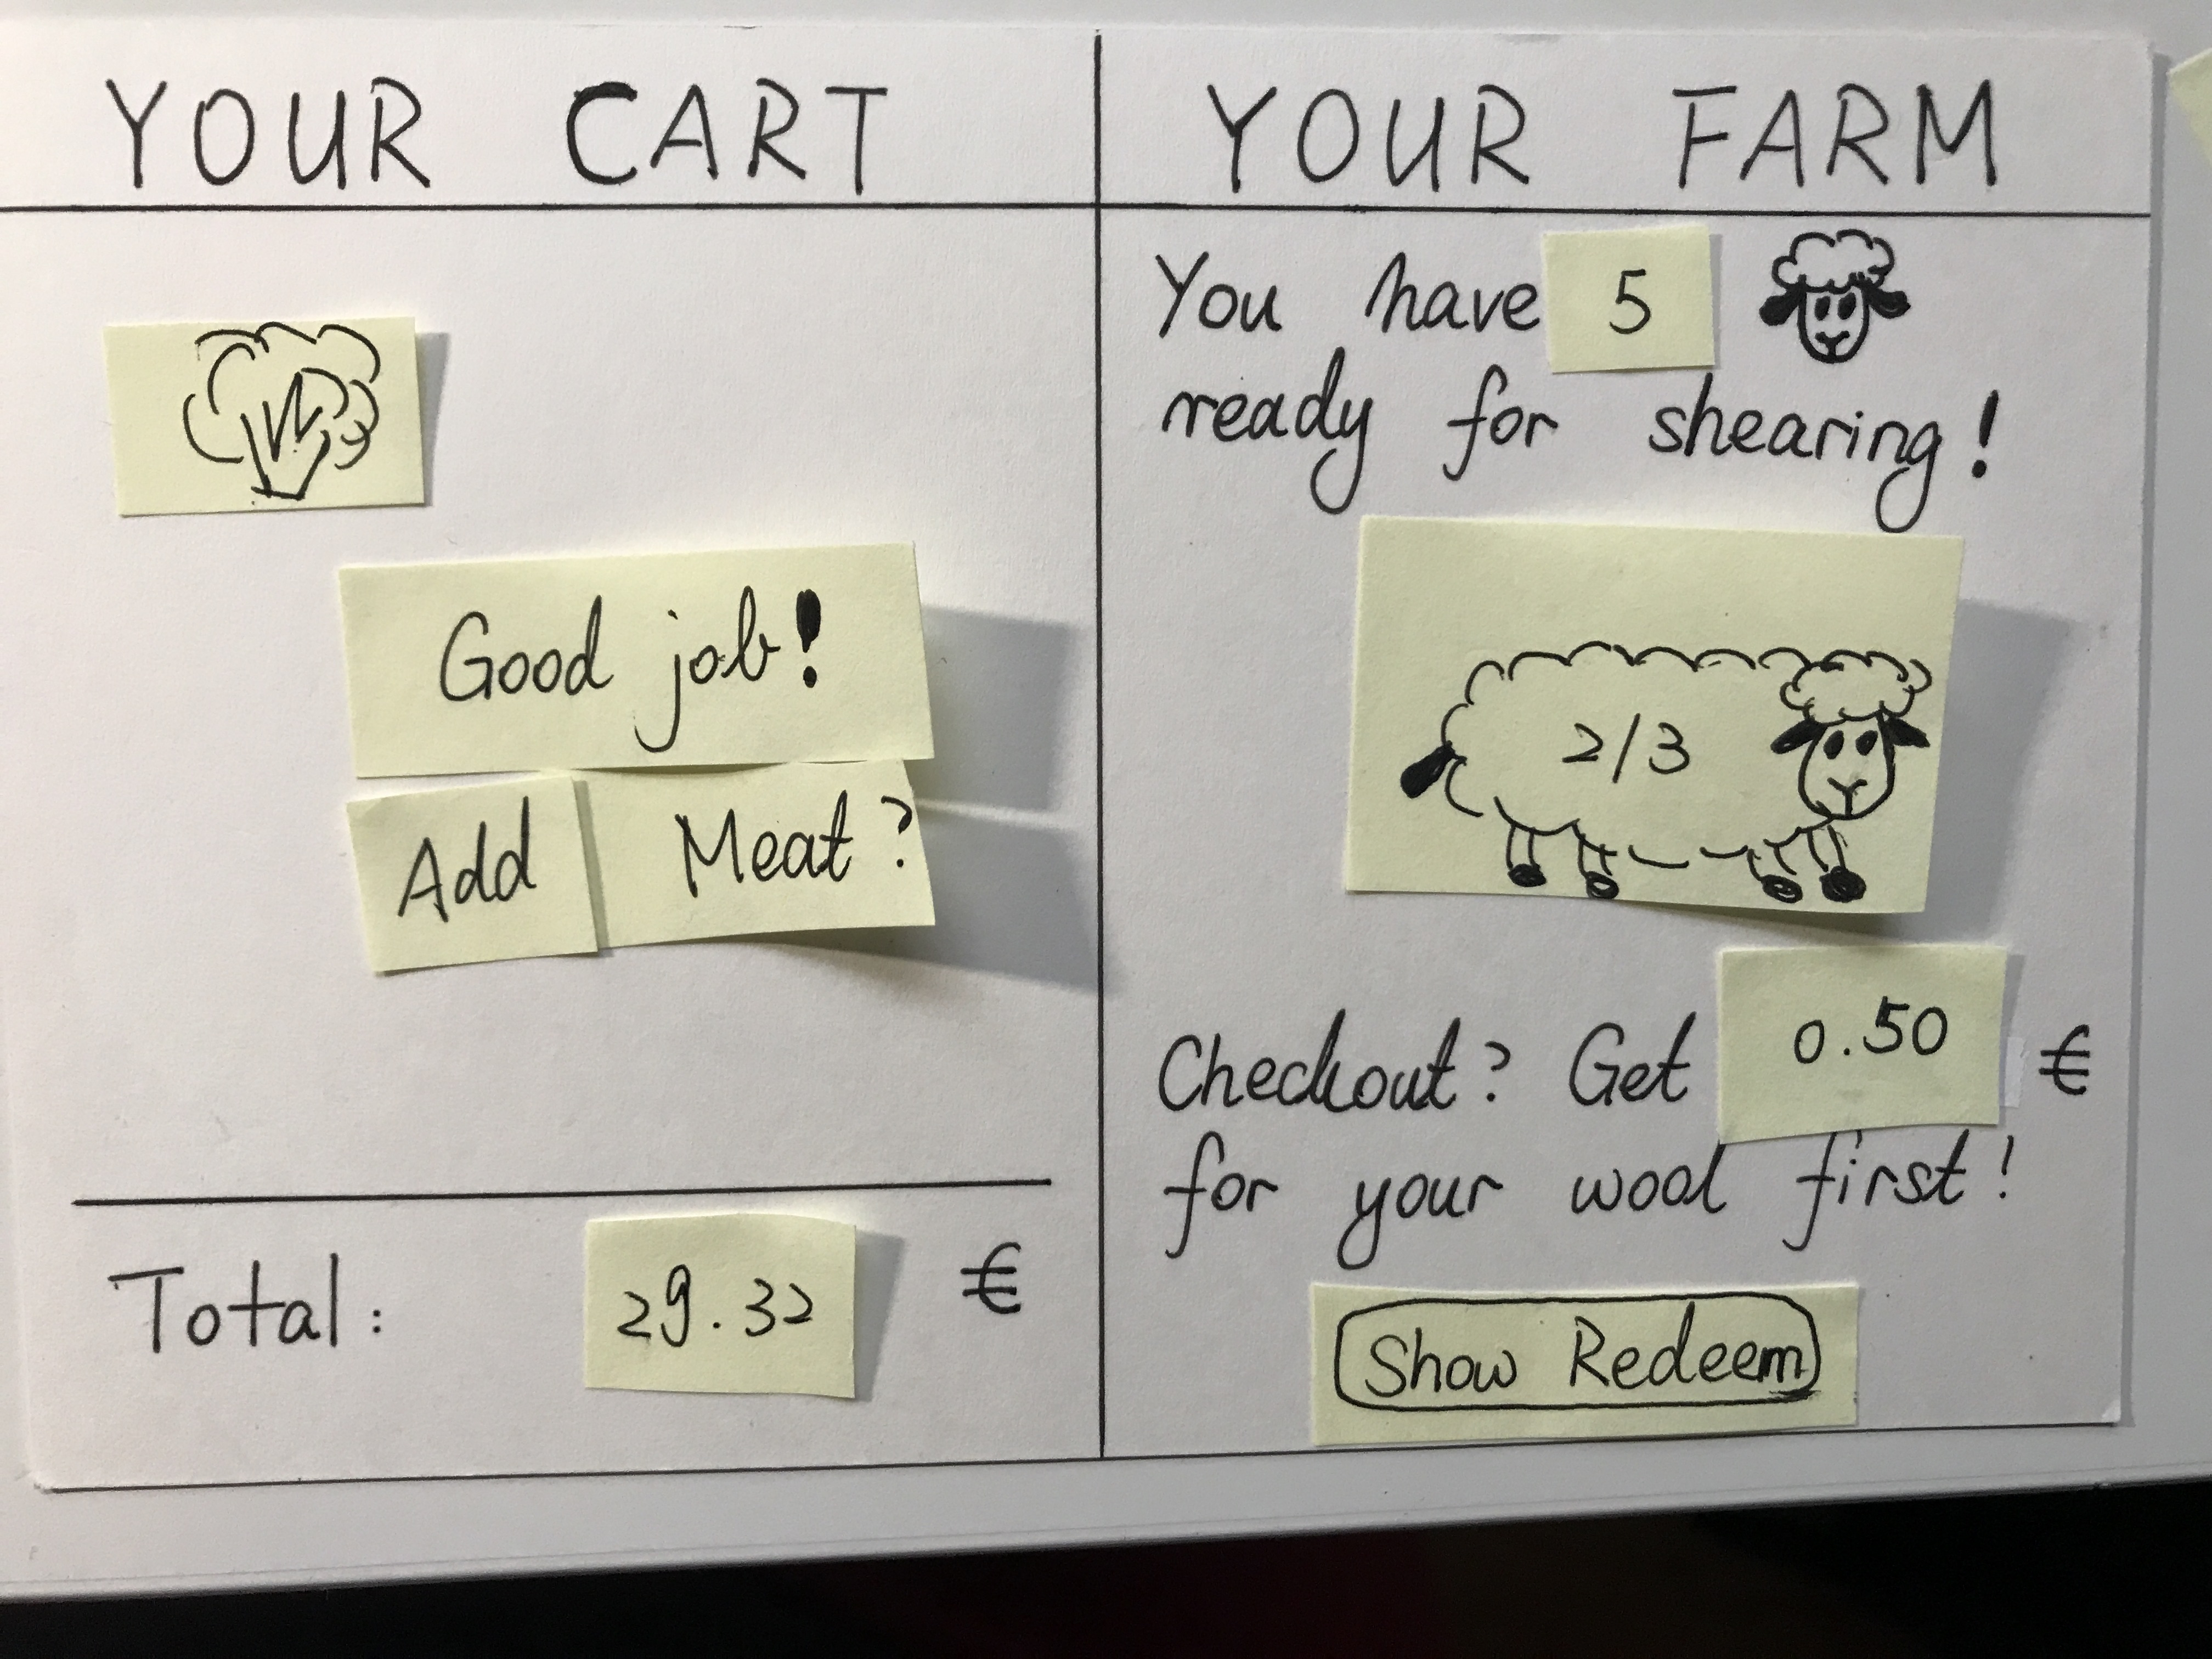 YOUR CART
Good job!
Add Meat?
Total: 29.32 €
YOUR FARM
You have 5
ready for shearing!
2/3
Checkout? Get 0.50 €
for your wool first!
Show Redeem